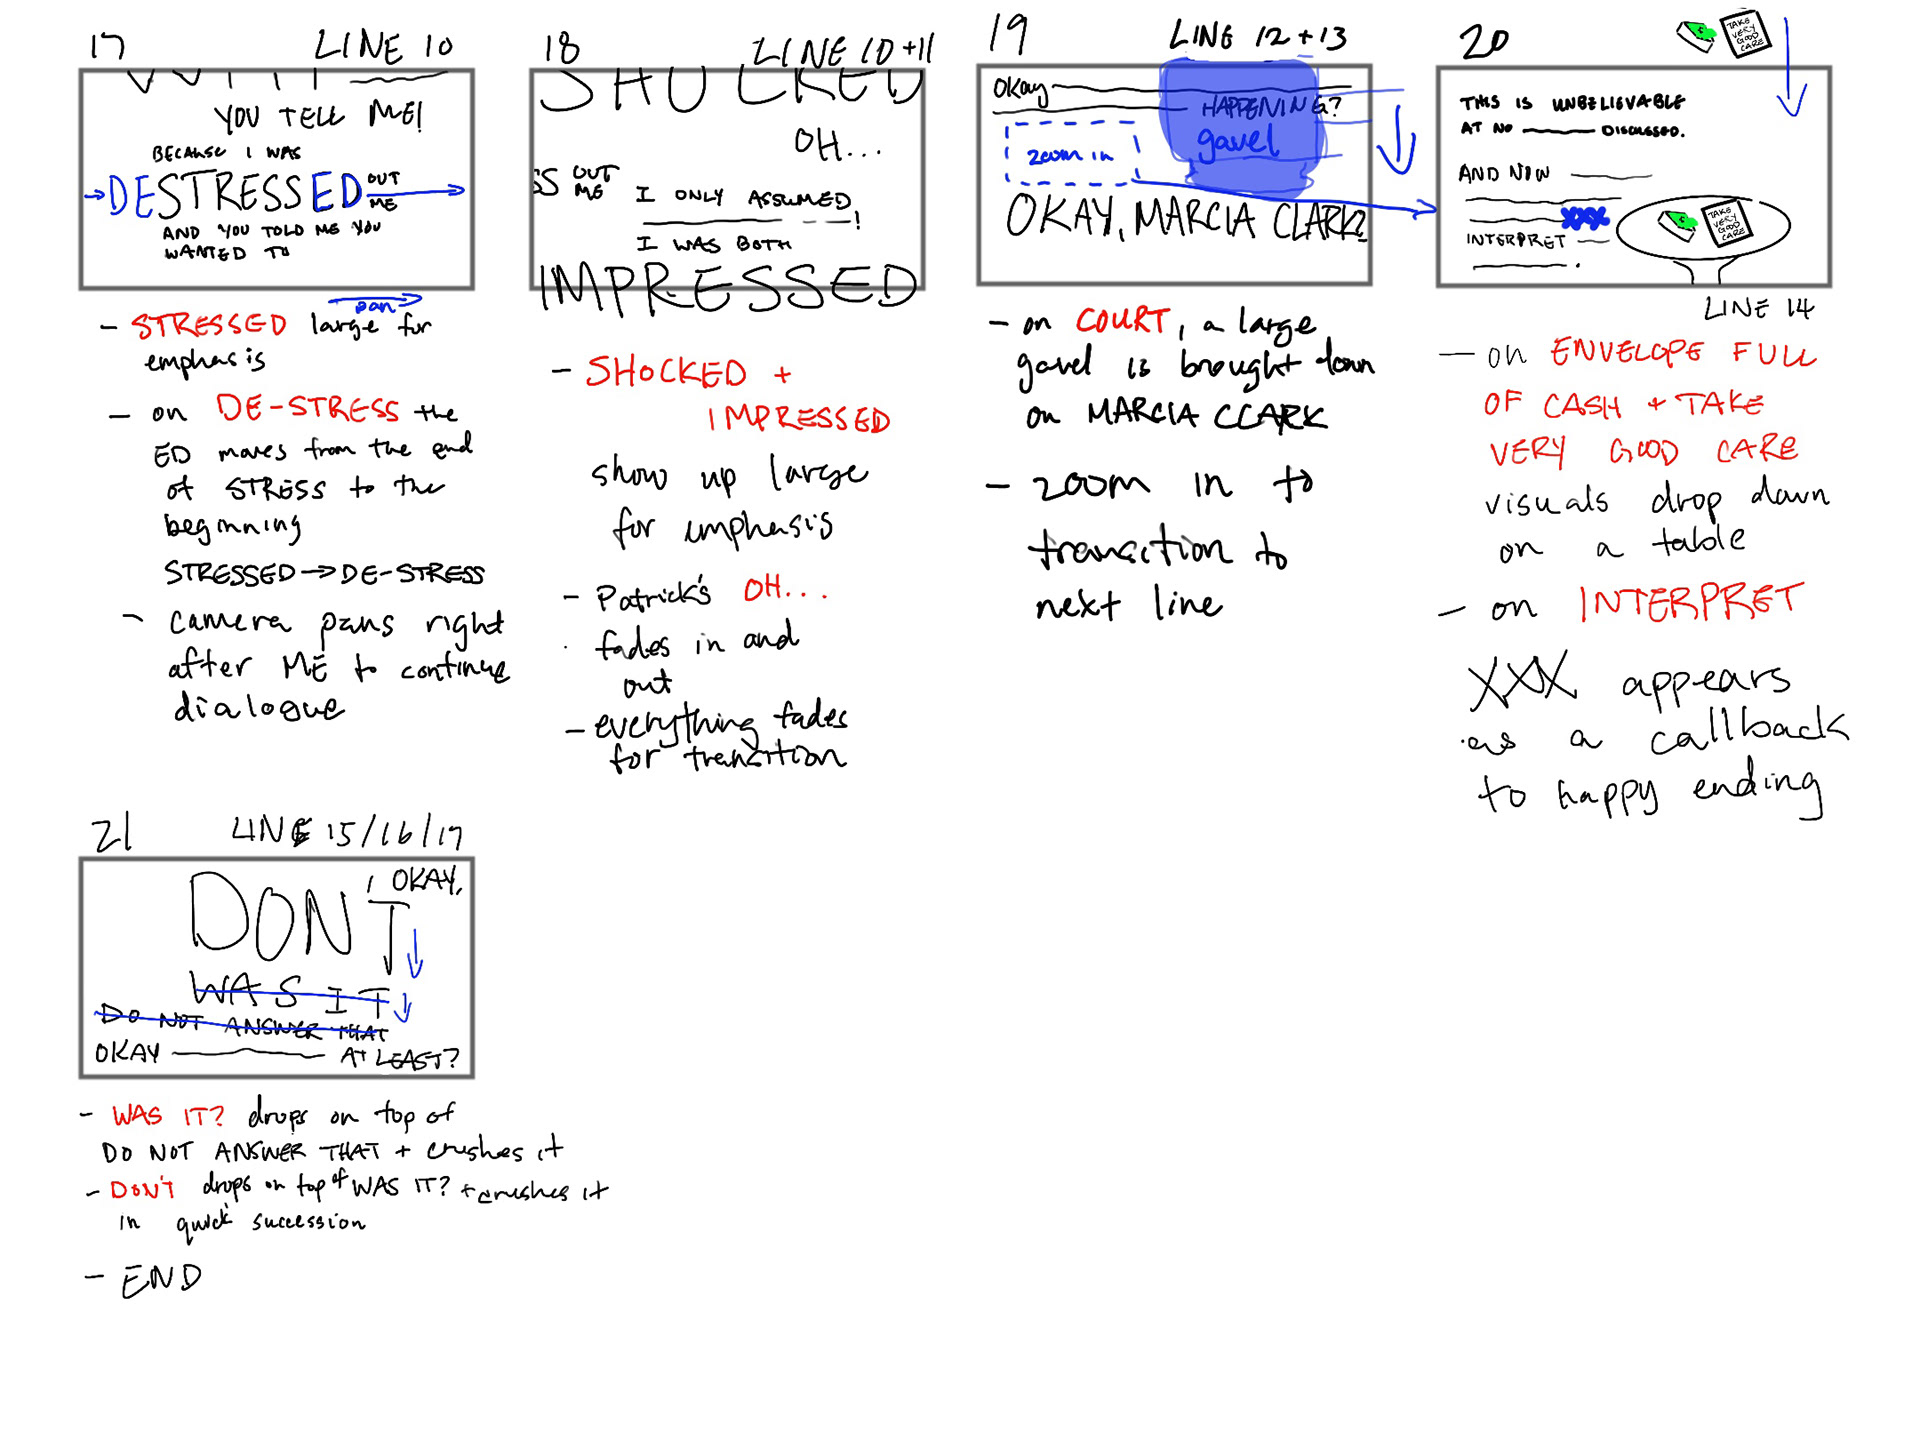 17 LINE 10
YOU TELL ME!
BECAUSE I WAS
DESTRESSED OUT
ME
AND YOU TOLD ME YOU
WANTED TO
pan
- STRESSED large for
emphasis
- on DE-STRESS the
ED moves from the end
of STRESS to the
beginning
STRESSED → DE-STRESS
- camera pans right
after ME to continue
dialogue
18 LINE 10+11
SHOCKED
OH...
SS OUT
ME
I ONLY ASSUMED
!
I WAS BOTH
IMPRESSED
- SHOCKED +
IMPRESSED
show up large
for emphasis
- Patrick's OH...
fades in and
out
- everything fades
for transition
19 LINE 12+13
Okay
HAPPENING?
gavel
zoom in
OKAY, MARCIA CLARK?
- on COURT, a large
gavel is brought down
on MARCIA CLARK
- zoom in to
transition to
next line
20
TAKE
VERY
GOOD
CARE
THIS IS UNBELIEVABLE
AT NO DISCUSSED.
AND NOW
XXX
INTERPRET
TAKE
VERY
GOOD
CARE
LINE 14
- on ENVELOPE FULL
OF CASH + TAKE
VERY GOOD CARE
visuals drop down
on a table
- on INTERPRET
XXX appears
as a callback
to happy ending
21 LINE 15/16/17
OKAY,
DON'T
WAS IT
DO NOT ANSWER THAT
OKAY AT LEAST?
- WAS IT? drops on top of
DO NOT ANSWER THAT + crushes it
- DON'T drops on top of WAS IT? + crushes it
in quick succession
- END